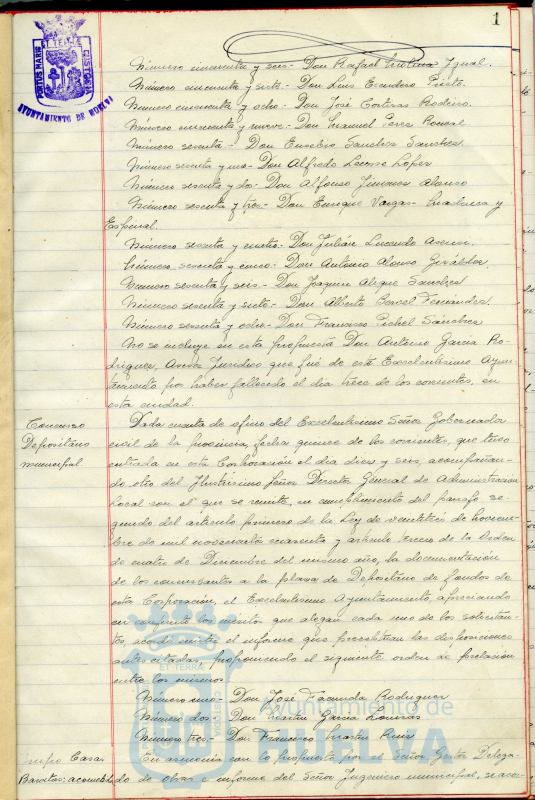 1
PORTUS MARIS ET TERRE CUSTODIA
AYUNTAMIENTO DE HUELVA
Número cincuenta y seis.- Don Rafael Igual.
Número cincuenta y siete.- Don Luis Escudero Prieto.
Número cincuenta y ocho.- Don José Rodeiro.
Número cincuenta y nueve.- Don Manuel Perea
Número sesenta.- Don Eusebio Sanchez Sanchez
Número sesenta y uno- Don Alfredo Lopez
Número sesenta y dos- Don Alfonso Jimenez Alonso
Número sesenta y tres- Don Enrique Vargas y
Espinal.
Número sesenta y cuatro- Don Julián Asensio.
Número sesenta y cinco- Don Antonio Alonso Giráldez.
Número sesenta y seis- Don Joaquin Sanchez
Número sesenta y siete- Don Alberto Fernandez.
Número sesenta y ocho- Don Francisco Pichel Sánchez
No se incluye en esta propuesta Don Antonio Garcia Ro-
driguez, Asesor Juridico que fué de este Excelentisimo Ayun-
tamiento por haber fallecido el dia trece de los corrientes, en
esta ciudad.
Concurso
Depositario
municipal
Dada cuenta de oficio del Excelentisimo Señor Gobernador
civil de la provincia, fecha quince de los corrientes, que tuvo
entrada en esta Corporación el dia diez y seis, acompañan-
do otro del Ilustrisimo Señor Director General de Administracion
Local con el que se remite, en cumplimiento del parrafo se-
gundo del articulo primero de la Ley de veintitres de Noviem-
bre de mil novecientos cuarenta y articulo tercero de la Orden
de cuatro de Diciembre del mismo año, la documentación
de los concursantes a la plaza de Depositario de fondos de
esta Corporación, el Excelentisimo Ayuntamiento, apreciando
en conjunto los méritos que alegan cada uno de los solicitan-
tes, acordó emitir el informe que preceptúan las disposiciones
antes citadas, proponiendo el siguiente orden de prelación
entre los mismos
Número uno.- Don José Facundo Rodriguez
Número dos.- Don Martin Garcia
Número tres.- Don Francisco Martin Ruiz
Grupo Casas
Baratas; acometida
En armonia con lo propuesto por el Señor Gestor Delega-
do de obras e informe del Señor Ingeniero municipal, se acor-
PORTUS MARIS
ET TERRÆ
Ayuntamiento de
HUELVA